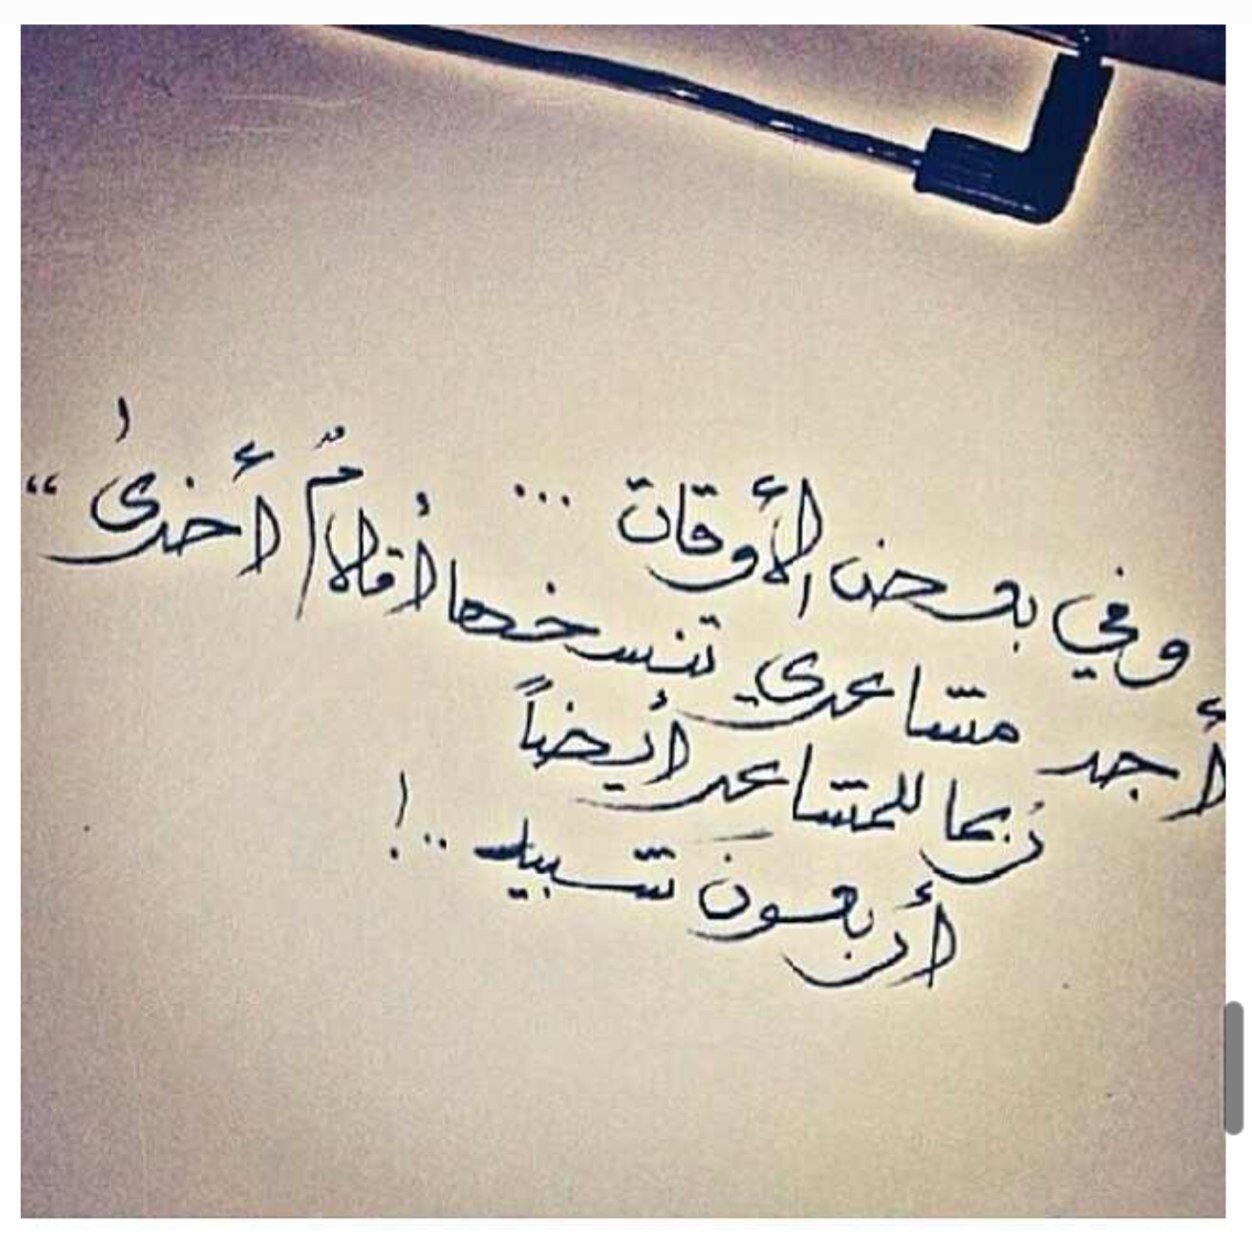 وفي بعض الأوقات ...
أجد مشاعري تنسخها أقلامٌ أخرىٰ “
رُبما للمشاعر أيضاً
أربعونَ شبيه ..!